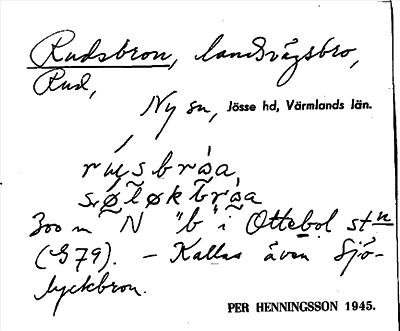 Rudsbron, landsvägsbro,
Rud,
Ny sn, Jösse hd, Värmlands län.
300 m N "b" i Ottebol stn
(G79). – Kallas även Sjö-
lyckbron.
PER HENNINGSSON 1945.